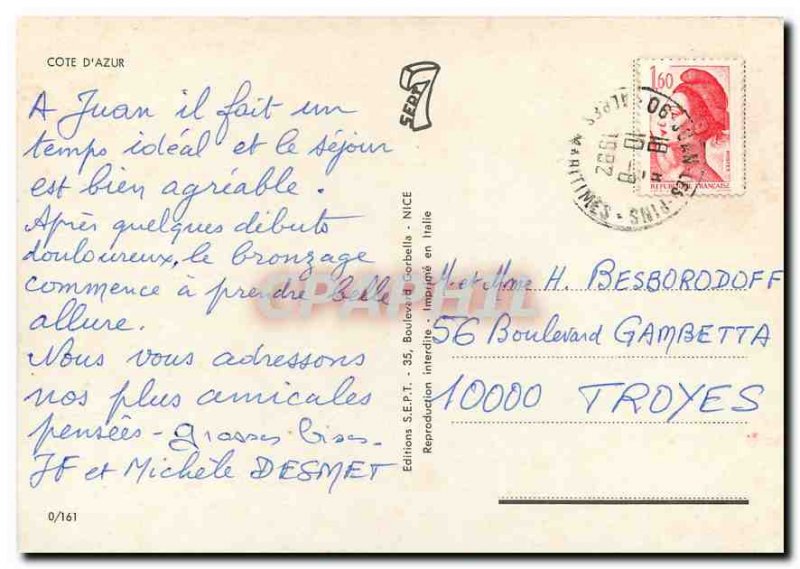 COTE D'AZUR
A Juan il fait un
temps idéal et le séjour
est bien agréable.
Après quelques débuts
douloureux, le bronzage
commence à prendre belle
allure.
Nous vous adressons
nos plus amicales
pensées - grosses bises -
JF et Michèle DESMET
0/161
SEPT
Editions S.E.P.T. - 35, Boulevard Gorbella - NICE
Reproduction interdite - Imprimé en Italie
1,60
REPUBLIQUE FRANÇAISE
06 - JUAN LES-PINS
1982
ALPES MARITIMES
M. et Mme H. BESBORODOFF
56 Boulevard GAMBETTA
10000 TROYES
CPAPHIL